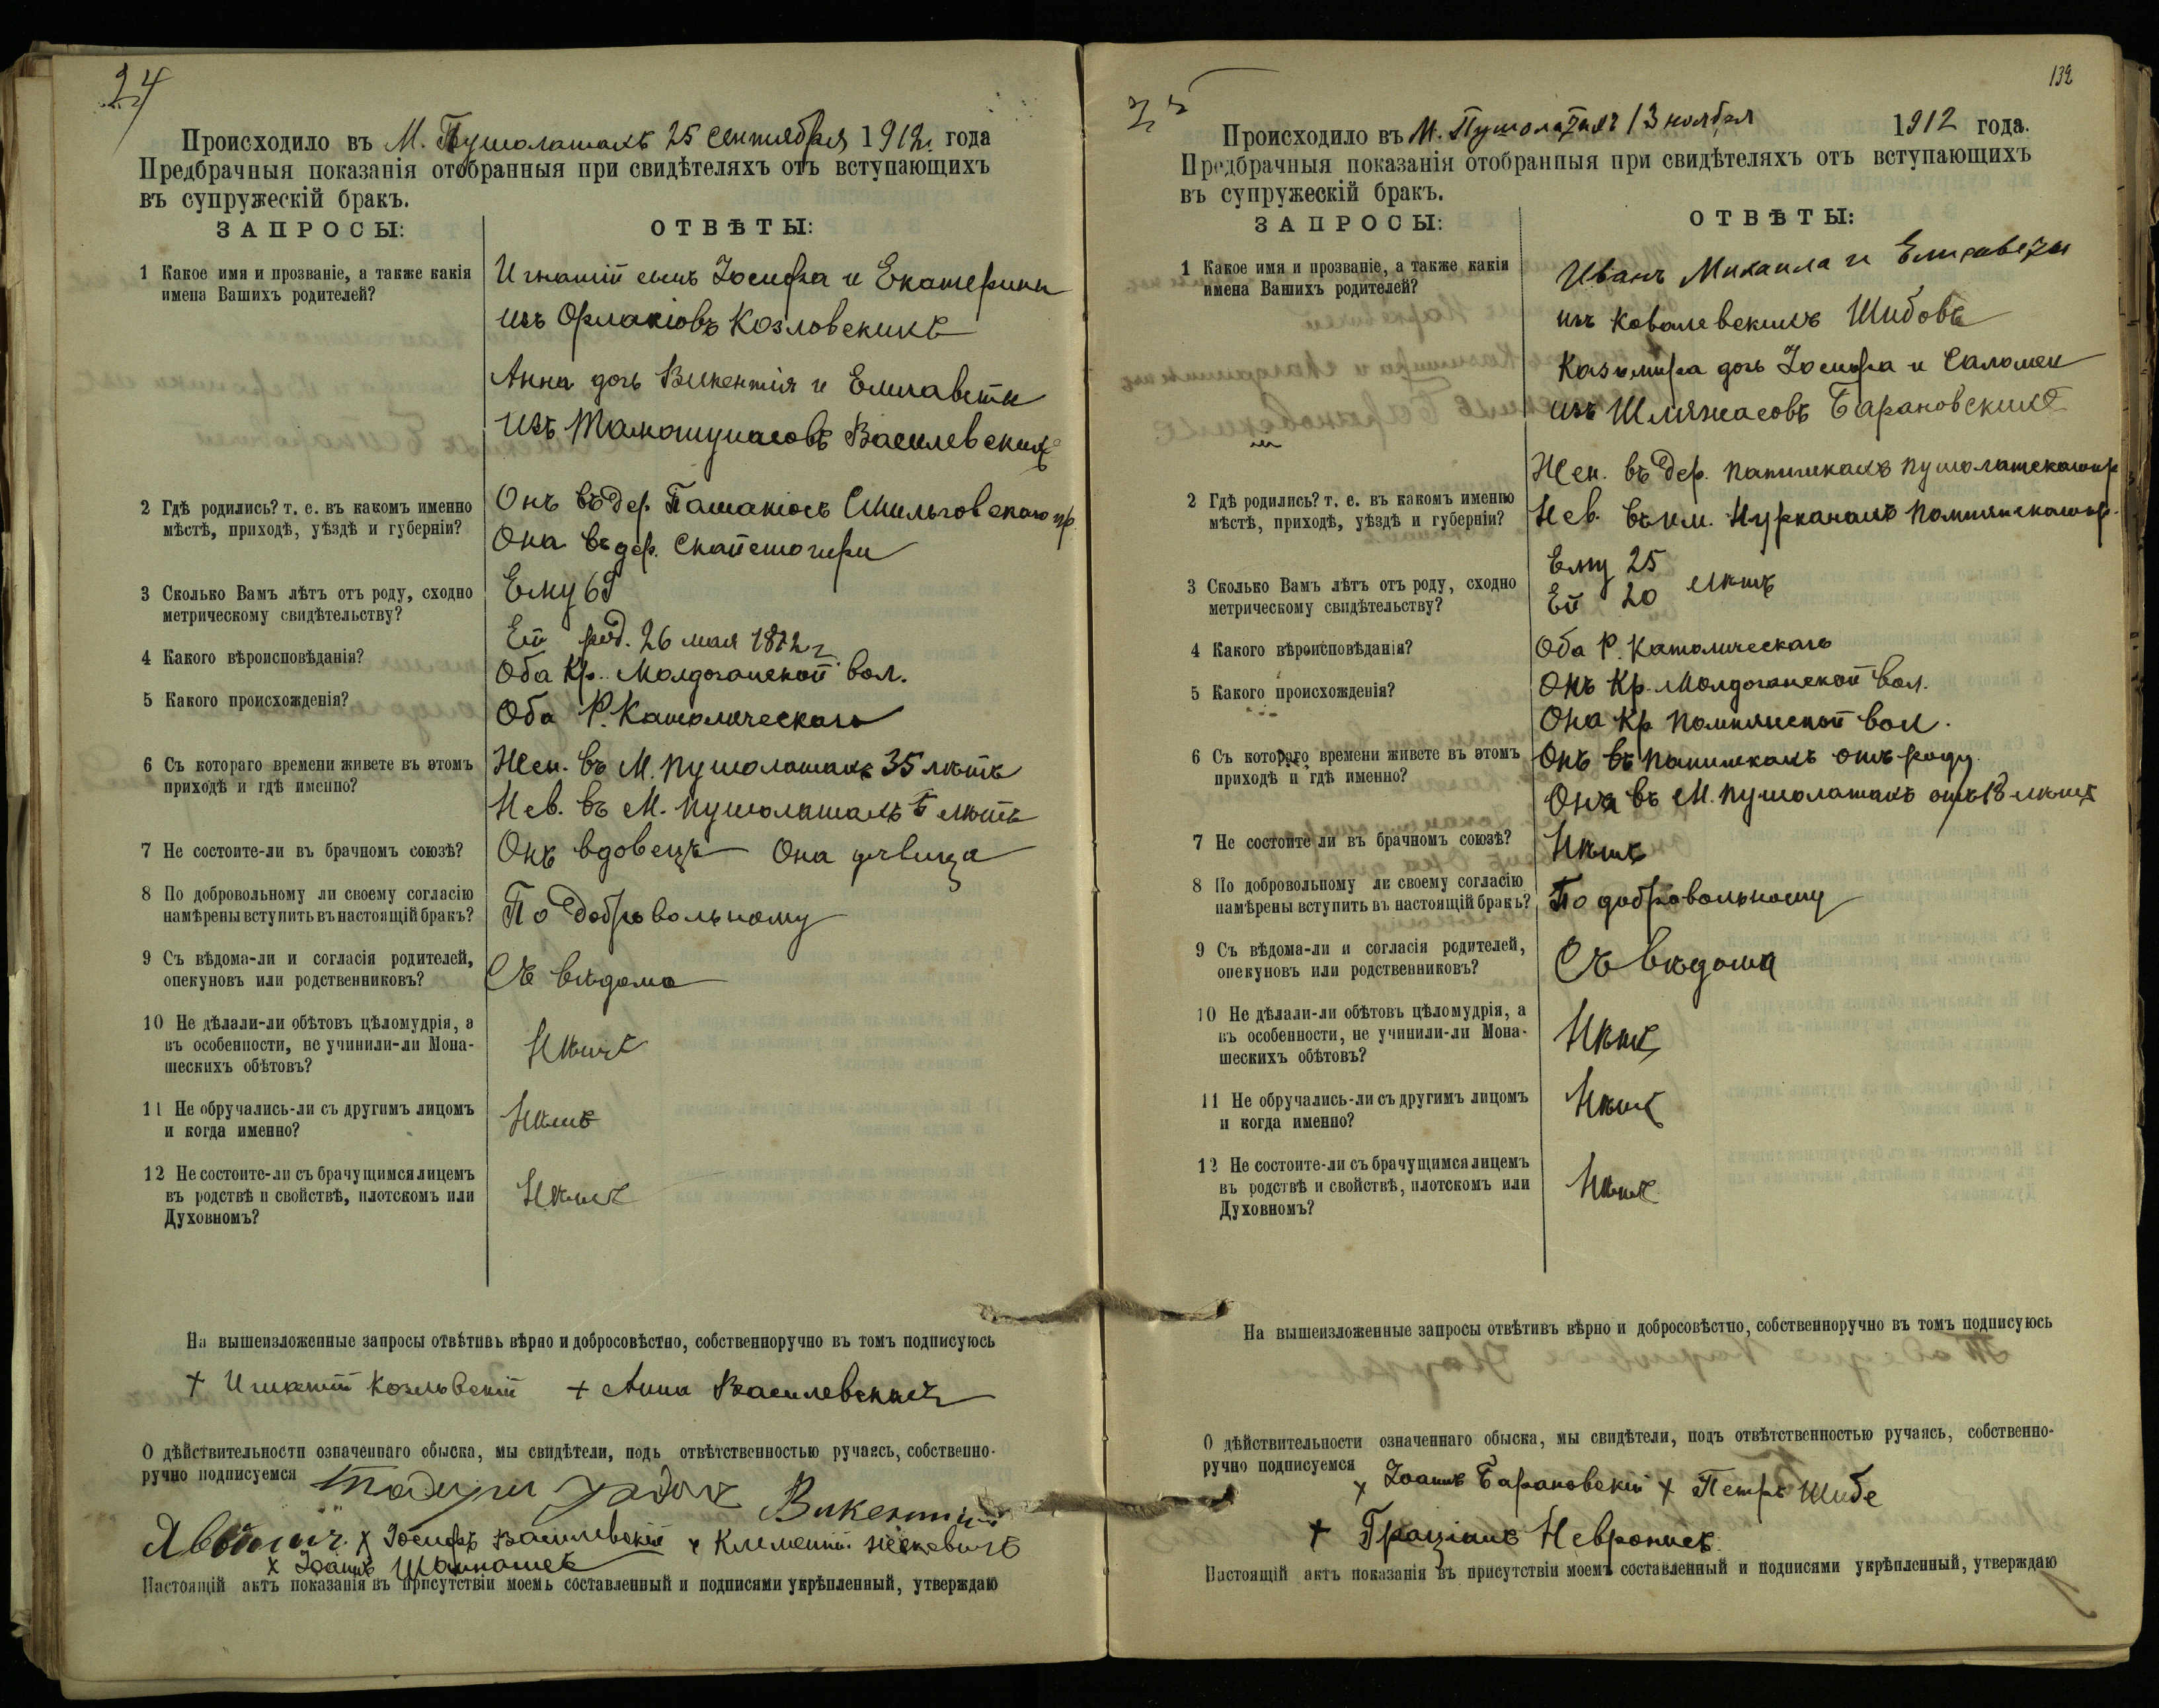 24
Происходило въ М. Пушолатахъ 25 Сентября 1912 г. года
Предбрачныя показанія отобранныя при свидѣтеляхъ отъ вступающихъ
въ супружескій бракъ.
ЗАПРОСЫ: ОТВѢТЫ:
1 Какое имя и прозваніе, а также какія
имена Вашихъ родителей?
Игнатій сынъ Іосифа и Екатерины
изъ Орлакіовъ Козловскихъ
Анна дочь Викентія и Елисаветы
изъ Тамошунасовъ Василевскихъ
2 Гдѣ родились? т. е. въ какомъ именно
мѣстѣ, приходѣ, уѣздѣ и губерніи?
Онъ въ дер. Смильговскаго пр.
Она въ дер.
3 Сколько Вамъ лѣтъ отъ роду, сходно
метрическому свидѣтельству?
Ему
Ей род. 26 мая 1872 г
4 Какого вѣроисповѣданія?
Оба Кр. Молдогапской вол.
5 Какого происхожденія?
Оба Р. Католическаго
6 Съ котораго времени живете въ этомъ
приходѣ и гдѣ именно?
Жен. въ М. Пушолатахъ 35 лѣтъ
Нев. въ М. Пушолатахъ лѣтъ
7 Не состоите-ли въ брачномъ союзѣ?
Онъ вдовецъ Она дѣвица
8 По добровольному ли своему согласію
намѣрены вступить въ настоящій бракъ?
По добровольному
9 Съ вѣдома-ли и согласія родителей,
опекуновъ или родственниковъ?
Съ вѣдома
10 Не дѣлали-ли обѣтовъ цѣломудрія, а
въ особенности, не учинили-ли Мона-
шескихъ обѣтовъ?
Нѣтъ
11 Не обручались-ли съ другимъ лицомъ
и когда именно?
Нѣтъ
12 Не состоите-ли съ брачущимся лицемъ
въ родствѣ и свойствѣ, плотскомъ или
Духовномъ?
Нѣтъ
На вышеизложенные запросы отвѣтивъ вѣрно и добросовѣстно, собственноручно въ томъ подписуюсь
+ Игнатій Козловскій + Анна Василевскихъ
О дѣйствительности означеннаго обыска, мы свидѣтели, подъ отвѣтственностью ручаясь, собственно-
ручно подписуемся
Викентій
х Іосифъ Василевскій х Клементій
х Іоаннъ
Настоящій актъ показанія въ присутствіи моемъ составленный и подписями укрѣпленный, утверждаю
25
132
Происходило въ М. Пушолатахъ 13 ноября 1912 года.
Предбрачныя показанія отобранныя при свидѣтеляхъ отъ вступающихъ
въ супружескій бракъ.
ЗАПРОСЫ: ОТВѢТЫ:
1 Какое имя и прозваніе, а также какія
имена Вашихъ родителей?
Иванъ Михаила и Елисаветы
изъ Ковалевскихъ Шибовъ
Казимира дочь Іосифа и Саломеи
изъ Шляжасовъ Барановскихъ
2 Гдѣ родились? т. е. въ какомъ именно
мѣстѣ, приходѣ, уѣздѣ и губерніи?
Жен. въ дер. Папишкахъ Пушолатскаго пр
Нев. въ им. Нурканахъ Помпянскаго пр.
3 Сколько Вамъ лѣтъ отъ роду, сходно
метрическому свидѣтельству?
Ему 25
Ей 20 лѣтъ
4 Какого вѣроисповѣданія?
Оба Р. Католическаго
5 Какого происхожденія?
Онъ Кр. Молдогапской вол.
Она Кр Помпянской вол.
6 Съ котораго времени живете въ этомъ
приходѣ и гдѣ именно?
Онъ въ Папишкахъ отъ роду
Она въ М. Пушолатахъ отъ 18 лѣтъ
7 Не состоите ли въ брачномъ союзѣ?
Нѣтъ
8 По добровольному ли своему согласію
намѣрены вступить въ настоящій бракъ?
По добровольному
9 Съ вѣдома-ли и согласія родителей,
опекуновъ или родственниковъ?
Съ вѣдома
10 Не дѣлали-ли обѣтовъ цѣломудрія, а
въ особенности, не учинили-ли Мона-
шескихъ обѣтовъ?
Нѣтъ
11 Не обручались-ли съ другимъ лицомъ
и когда именно?
Нѣтъ
12 Не состоите-ли съ брачущимся лицемъ
въ родствѣ и свойствѣ, плотскомъ или
Духовномъ?
Нѣтъ
На вышеизложенные запросы отвѣтивъ вѣрно и добросовѣстно, собственноручно въ томъ подписуюсь
О дѣйствительности означеннаго обыска, мы свидѣтели, подъ отвѣтственностью ручаясь, собственно-
ручно подписуемся
х Іоаннъ Барановскій х Петръ Шибе
+ Граціанъ Невронисъ
Настоящій актъ показанія въ присутствіи моемъ составленный и подписями укрѣпленный, утверждаю